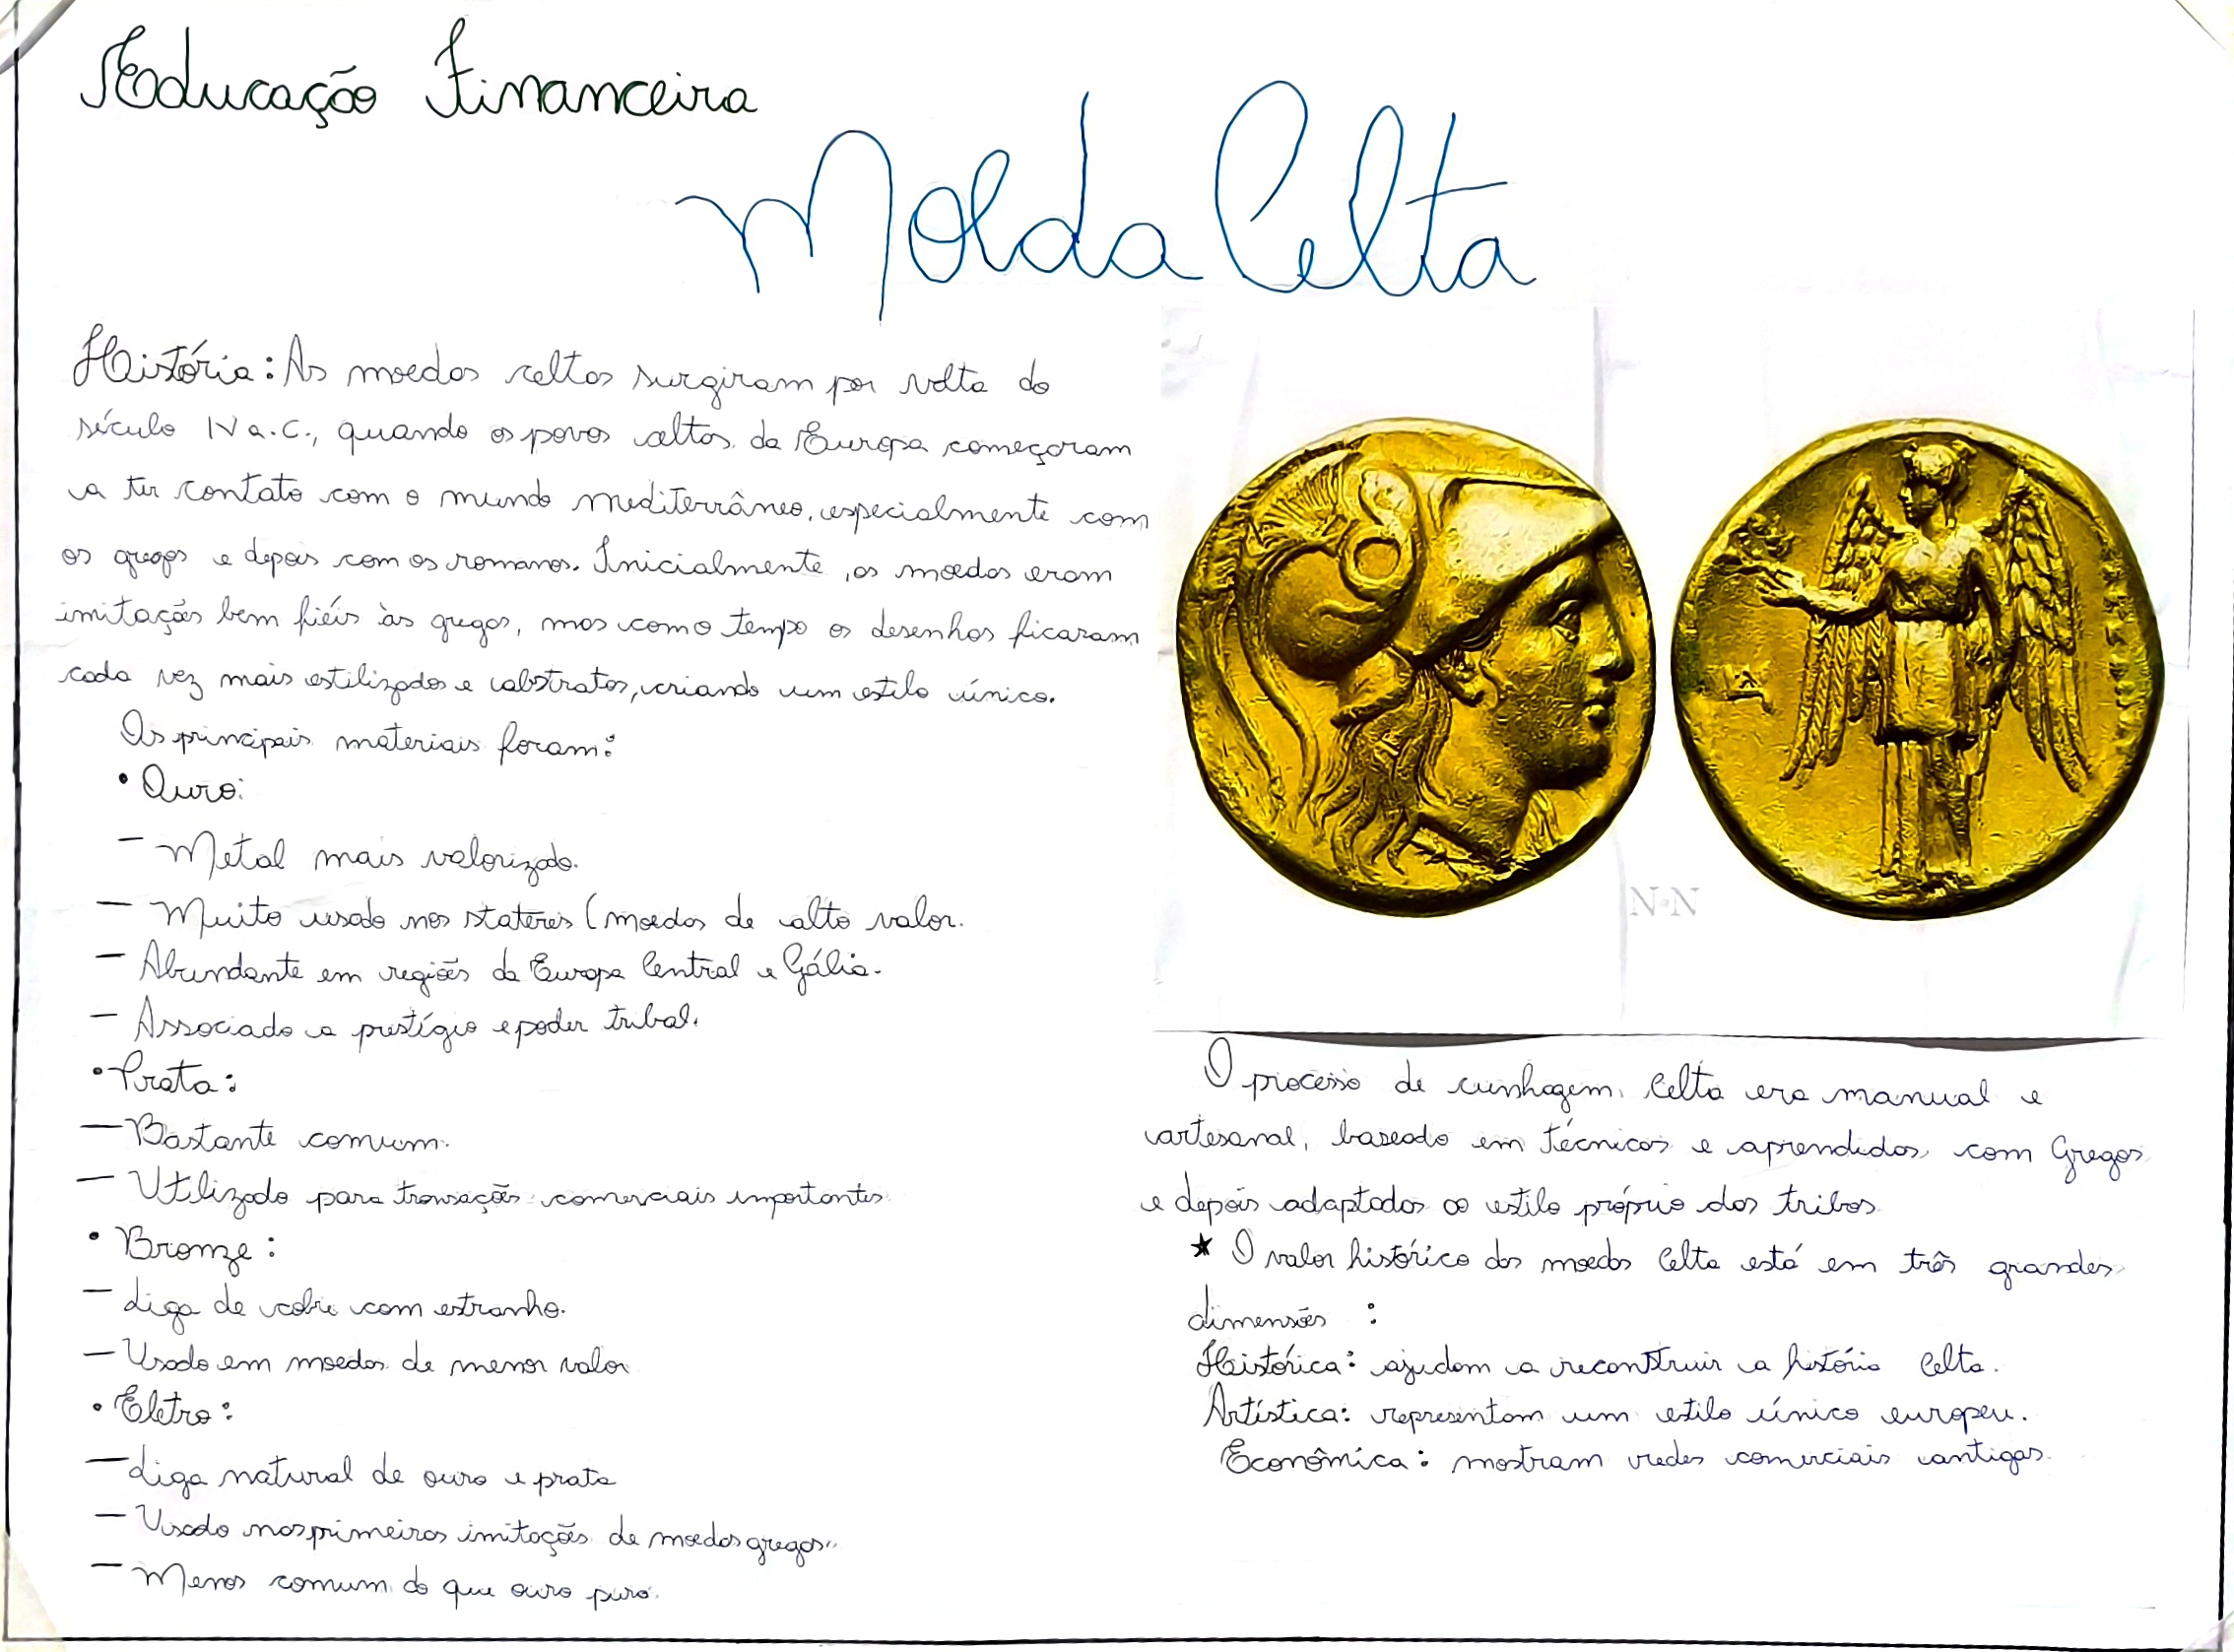 Educação Financeira
Molda Celta
História: As moedas celtas surgiram por volta do
século IV a.C., quando os povos celtas da Europa começaram
a ter contato com o mundo mediterrâneo, especialmente com
os gregos e depois com os romanos. Inicialmente, as moedas eram
imitações bem fiéis às gregas, mas com o tempo os desenhos ficaram
cada vez mais estilizados e abstratos, criando um estilo único.
Os principais materiais foram:
• Ouro:
— Metal mais valorizado.
— Muito usado nos stateres (moedas de alto valor.
— Abundante em regiões da Europa Central e Gália.
— Associado a prestígio e poder tribal.
• Prata:
— Bastante comum.
— Utilizado para transações comerciais importantes
• Bronze:
— Liga de cobre com estranho.
— Usado em moedas de menor valor
• Eletro:
— Liga natural de ouro e prata
— Usado nas primeiras imitações de moedas gregas..
— Menos comum do que ouro puro.
N•N
O processo de cunhagem Celta era manual e
artesanal, baseado em técnicas e aprendidas com Gregos
e depois adaptadas ao estilo próprio das tribos
★ O valor histórico das moedas Celta está em três grandes
dimensões :
Histórica: ajudam a reconstruir a história Celta.
Artística: representam um estilo único europeu.
Econômica: mostram redes comerciais antigas.